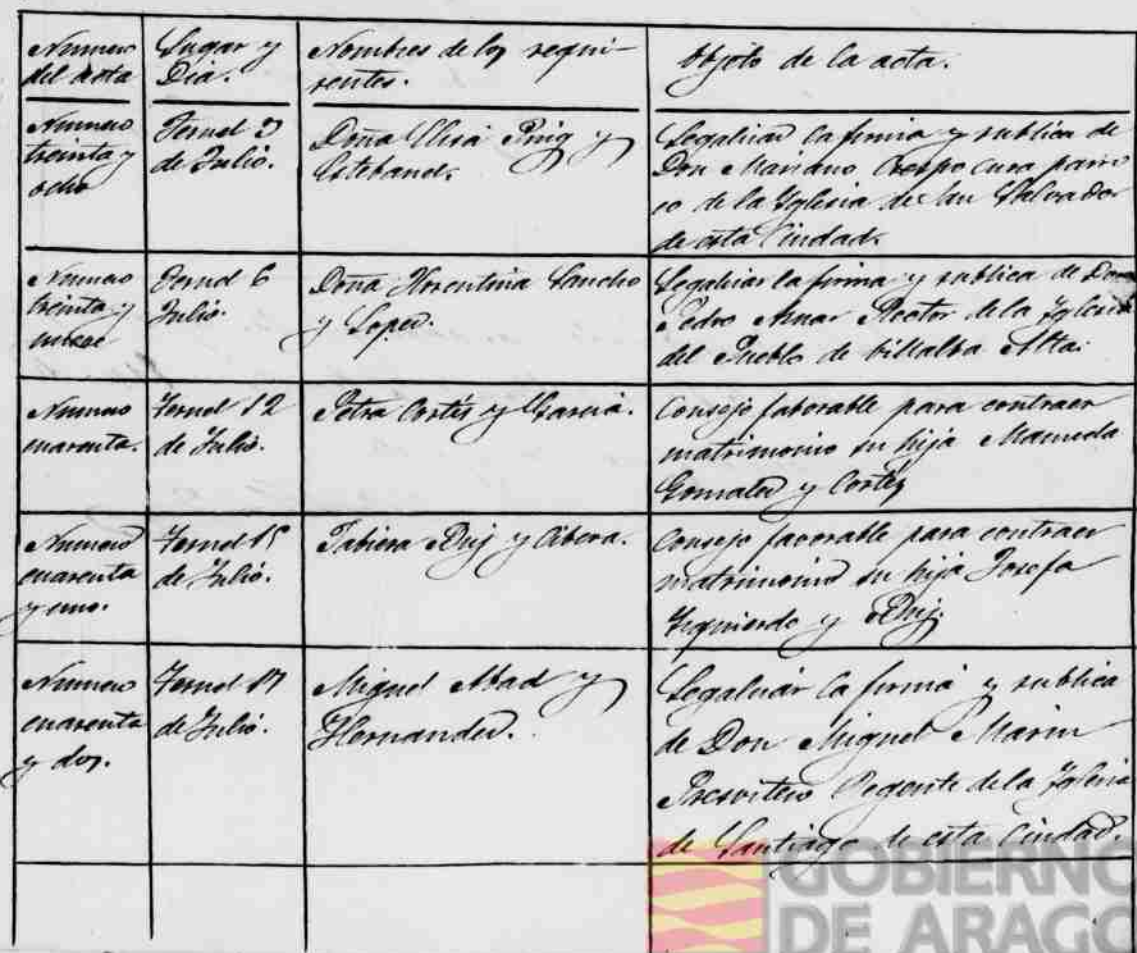 Numero
del acta
Lugar y
Dia.
Nombres de los requi-
rentes.
Objeto de la acta.
Numero
treinta y
ocho
Teruel 3
de Julio.
Doña Elisa Puig y
Esteband.
Legalizar la firma y rublica de
Don Mariano Crespo cura parro
co de la Yglesia de San Salvador
de esta Ciudad.
Numero
treinta y
nueve
Teruel 6
Julio.
Doña Florentina Sancho
y Lopez.
Legalizar la firma y rublica de Don
Pedro Rector de la Yglesia
del Pueblo de Villalba Alta.
Numero
cuarenta.
Teruel 12
de Julio.
Petra Cortés y Garcia.
Consejo faborable para contraer
matrimonio su hija Manuela
Gonzalez y Cortés
Numero
cuarenta
y uno.
Teruel 15
de Julio.
y Cibera.
Consejo favorable para contraer
matrimonio su hija Josefa
Yzquierdo y
Numero
cuarenta
y dos.
Teruel 17
de Julio.
Miguel Abad y
Hernandez.
Legalizar la firma y rublica
de Don Miguel Marin
Presvitero Regente de la Yglesia
de Santiago de esta Ciudad.
GOBIERNO
DE ARAGO